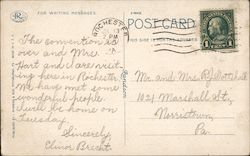 FOR WRITING MESSAGES
POST CARD
ROCHESTER
PM
1 CENT 1
The convention is
over and Mrs.
Hart and I are visit-
ing here in Rochester
We have met some
wonderful people.
will be home on
Tuesday.
Sincerely,
Elinor Brecht.
Mr. and Mrs
1021 Marshall St.,
Norristown,
Pa.